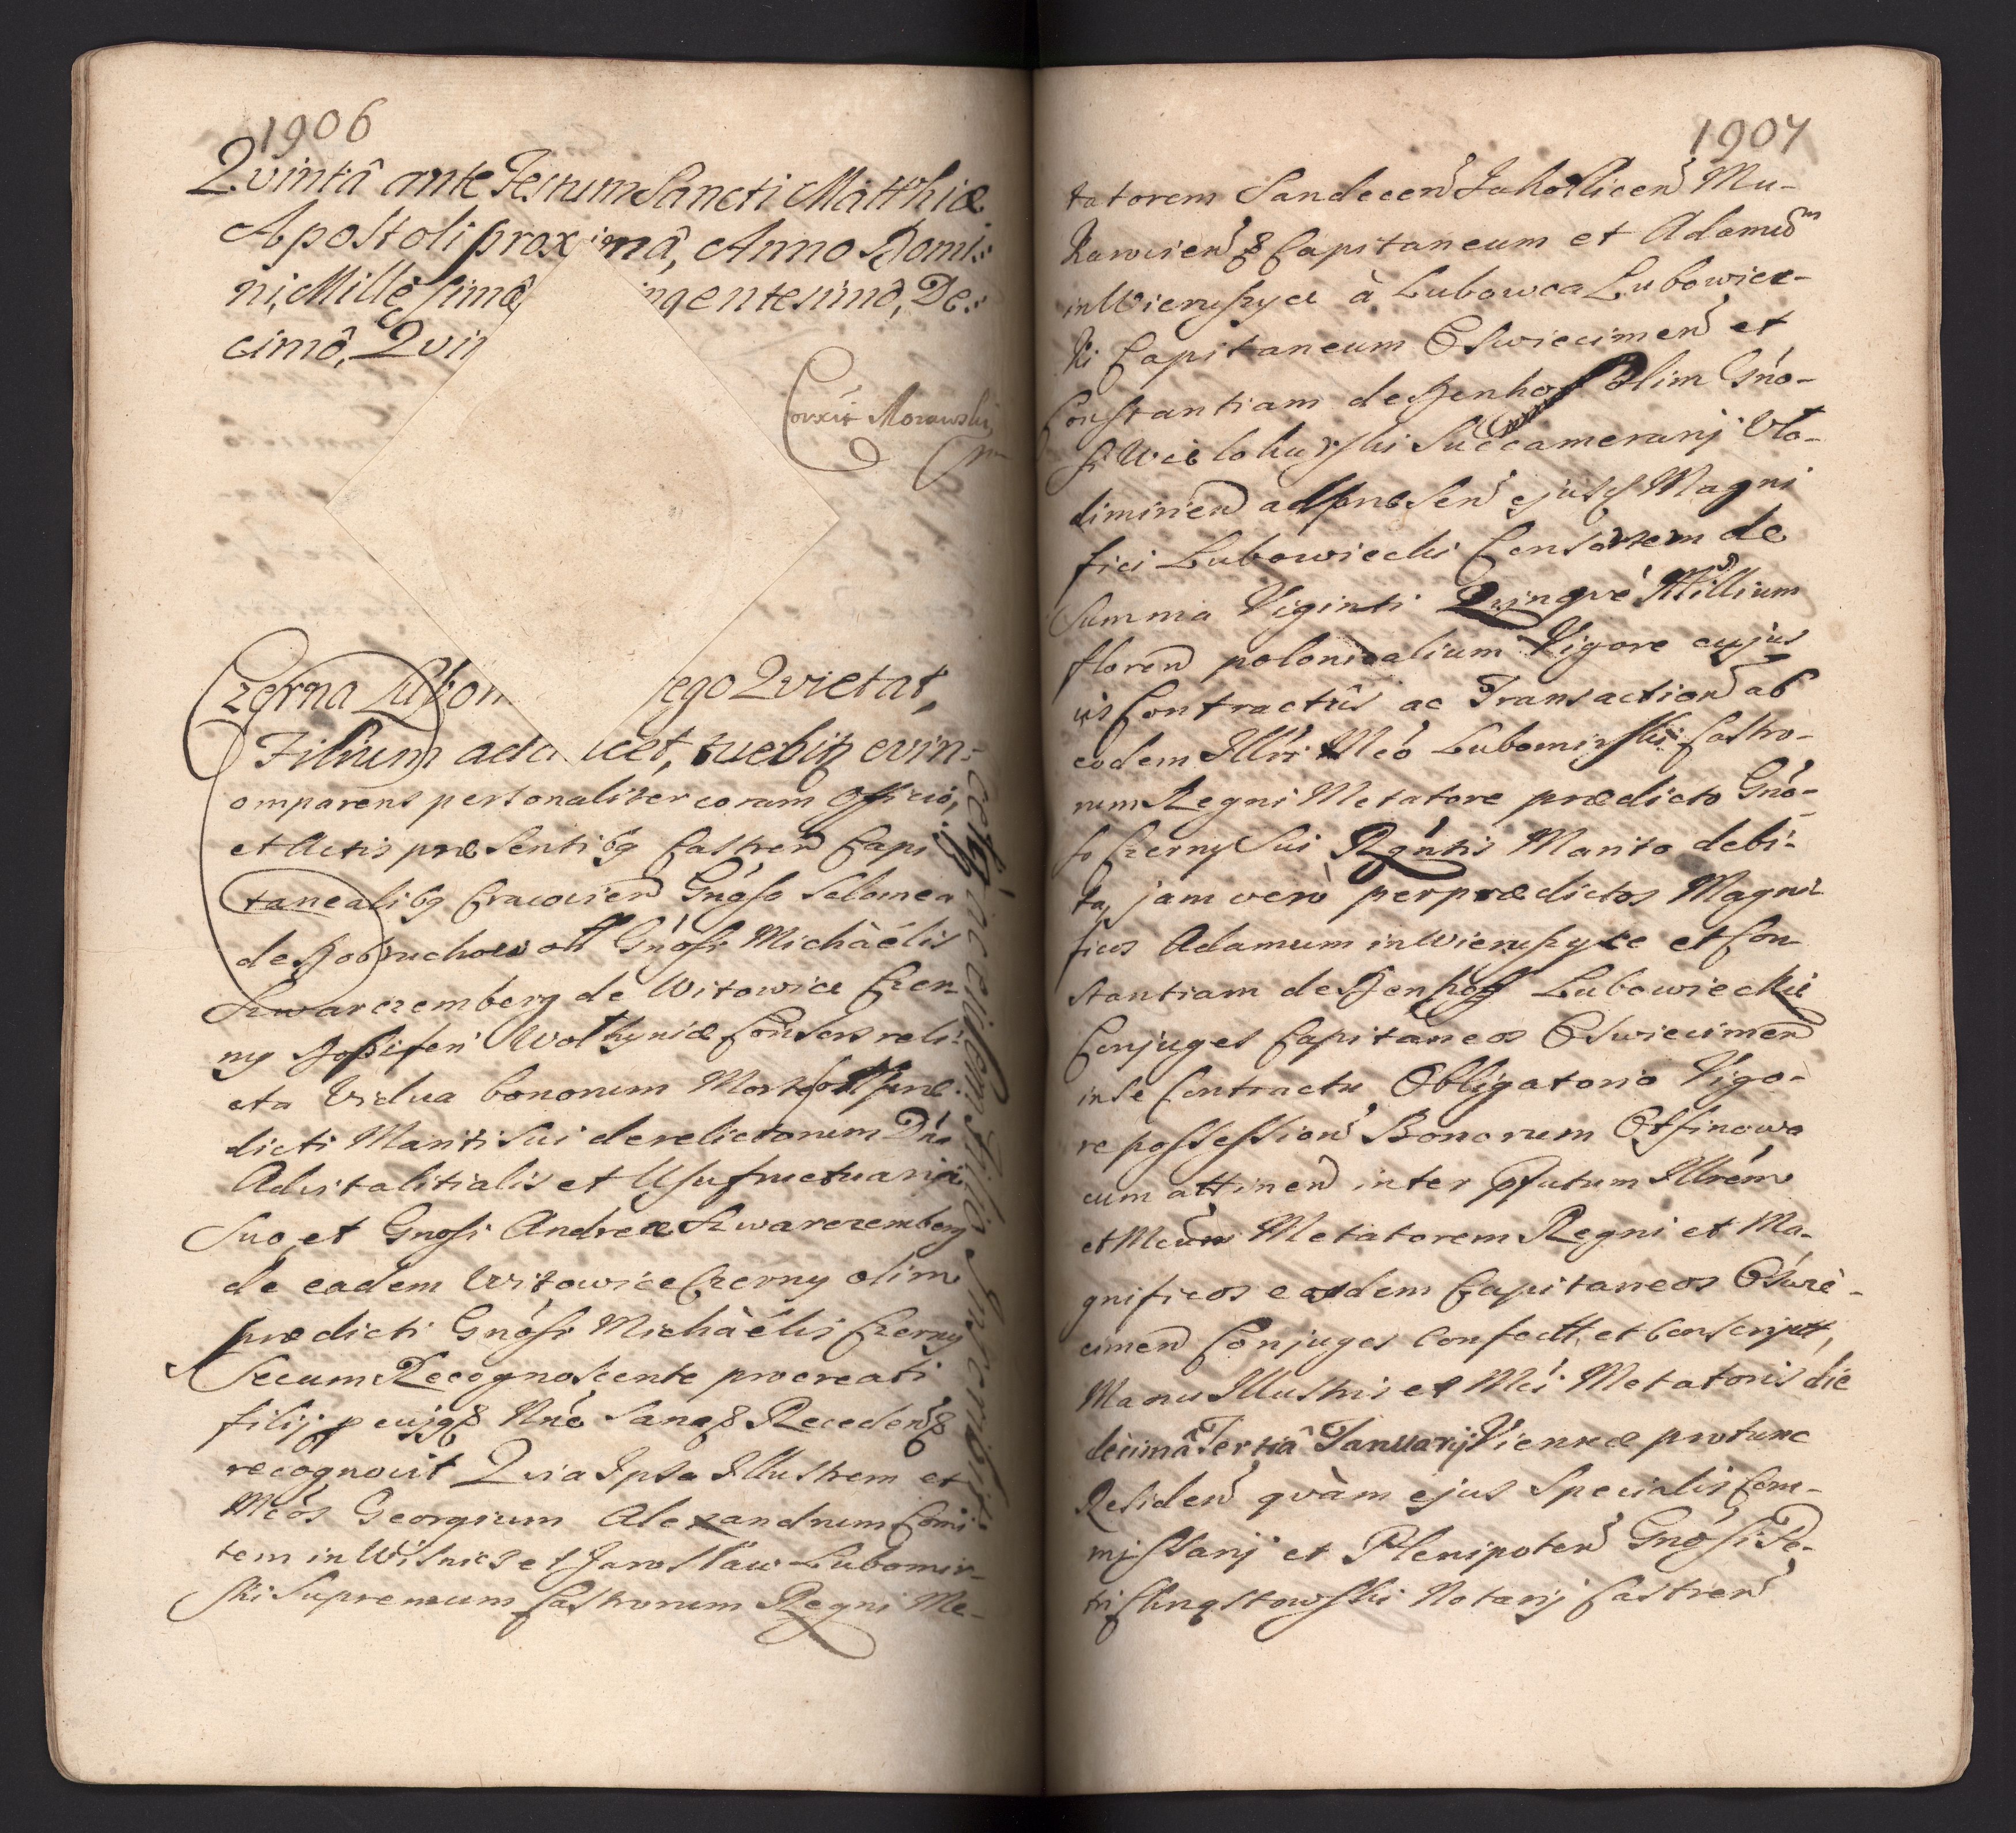 1906
Qvintâ ante Festum Sancti Matthiæ
Apostoli proximâ, Anno Domi:
ni, Millesimô ingentesimô, De:
cimô, Qvin
Corxit Morawski
Czerna Lubom ego Qvietat,
Filium adducet, tuebitq evin:
cetq
omparens personaliter coram Officio,
et Actis præsentibq Castren Capi
tanealibq Cracovien Gnosa Salomea
de oli Gnosi Michàélis
Szwarczemberg de Witowice Czer
ny Wolhyniæ Consors reli
cta Vidua bonorum Morte olim præ
dicti Mariti sui derelictorum Dna
Advitalitialis et Usufructuaria
Suo, et Gnosi Andreæ Szwarczemberg
de eadem Witowice Czerny olim
prædicti Gnósi Michàélis Czerny
Secum Recognoscente procreati
filij
recognovit Qvia Ipsa Illustrem et
Mcós Georgium Alexandrum Comi
tem in Wisnicz et Jaroslaw Lubomir-
ski Supremum Castrorum Regni Me-
1907
tatorem Sandecen Mu-
Capitaneum et Adamum
in Wierzbyce à Lubowca Lubowiec-
ki Capitaneum Oswiecimen et
Constantiam de Denhoff olim Gno-
si Wielohurski Succamerarij Vlo-
dimirien ad præsen ejusd Magni
fici Lubowiecki Consortem de
Summa Viginti Qvinqve Millium
floren polonicalium Vigore cujus
vis Contractûs ac Transaction ab
eodem Illri Mcó Lubomirski Castro-
rum Regni Metatore prædicto Gno-
so Czerny Sui Rgntis Marito debi-
ta, jam verò per prædictos Magni
ficos Adamum in Wierzbyce et Con
stantiam de Denhoff Lubowieckie
Conjuges Capitaneos Oswiecimen
in se Contractu Obligatorio Vigo-
re possession Bonorum Otfinowa
cum attinen inter pfatum Illrem
et Mcum Metatorem Regni et Ma-
gnificos eosdem Capitaneos Oswie-
cimen Conjuges confect, et conscript,
Manu Illustris et Mci Metatoris die
decimâ Tertiâ Januarij Viennæ protunc
Residen qvàm ejus Specialis Com-
mjssarij et Plenipoten Gnosi Pe-
tri Notarij Castren